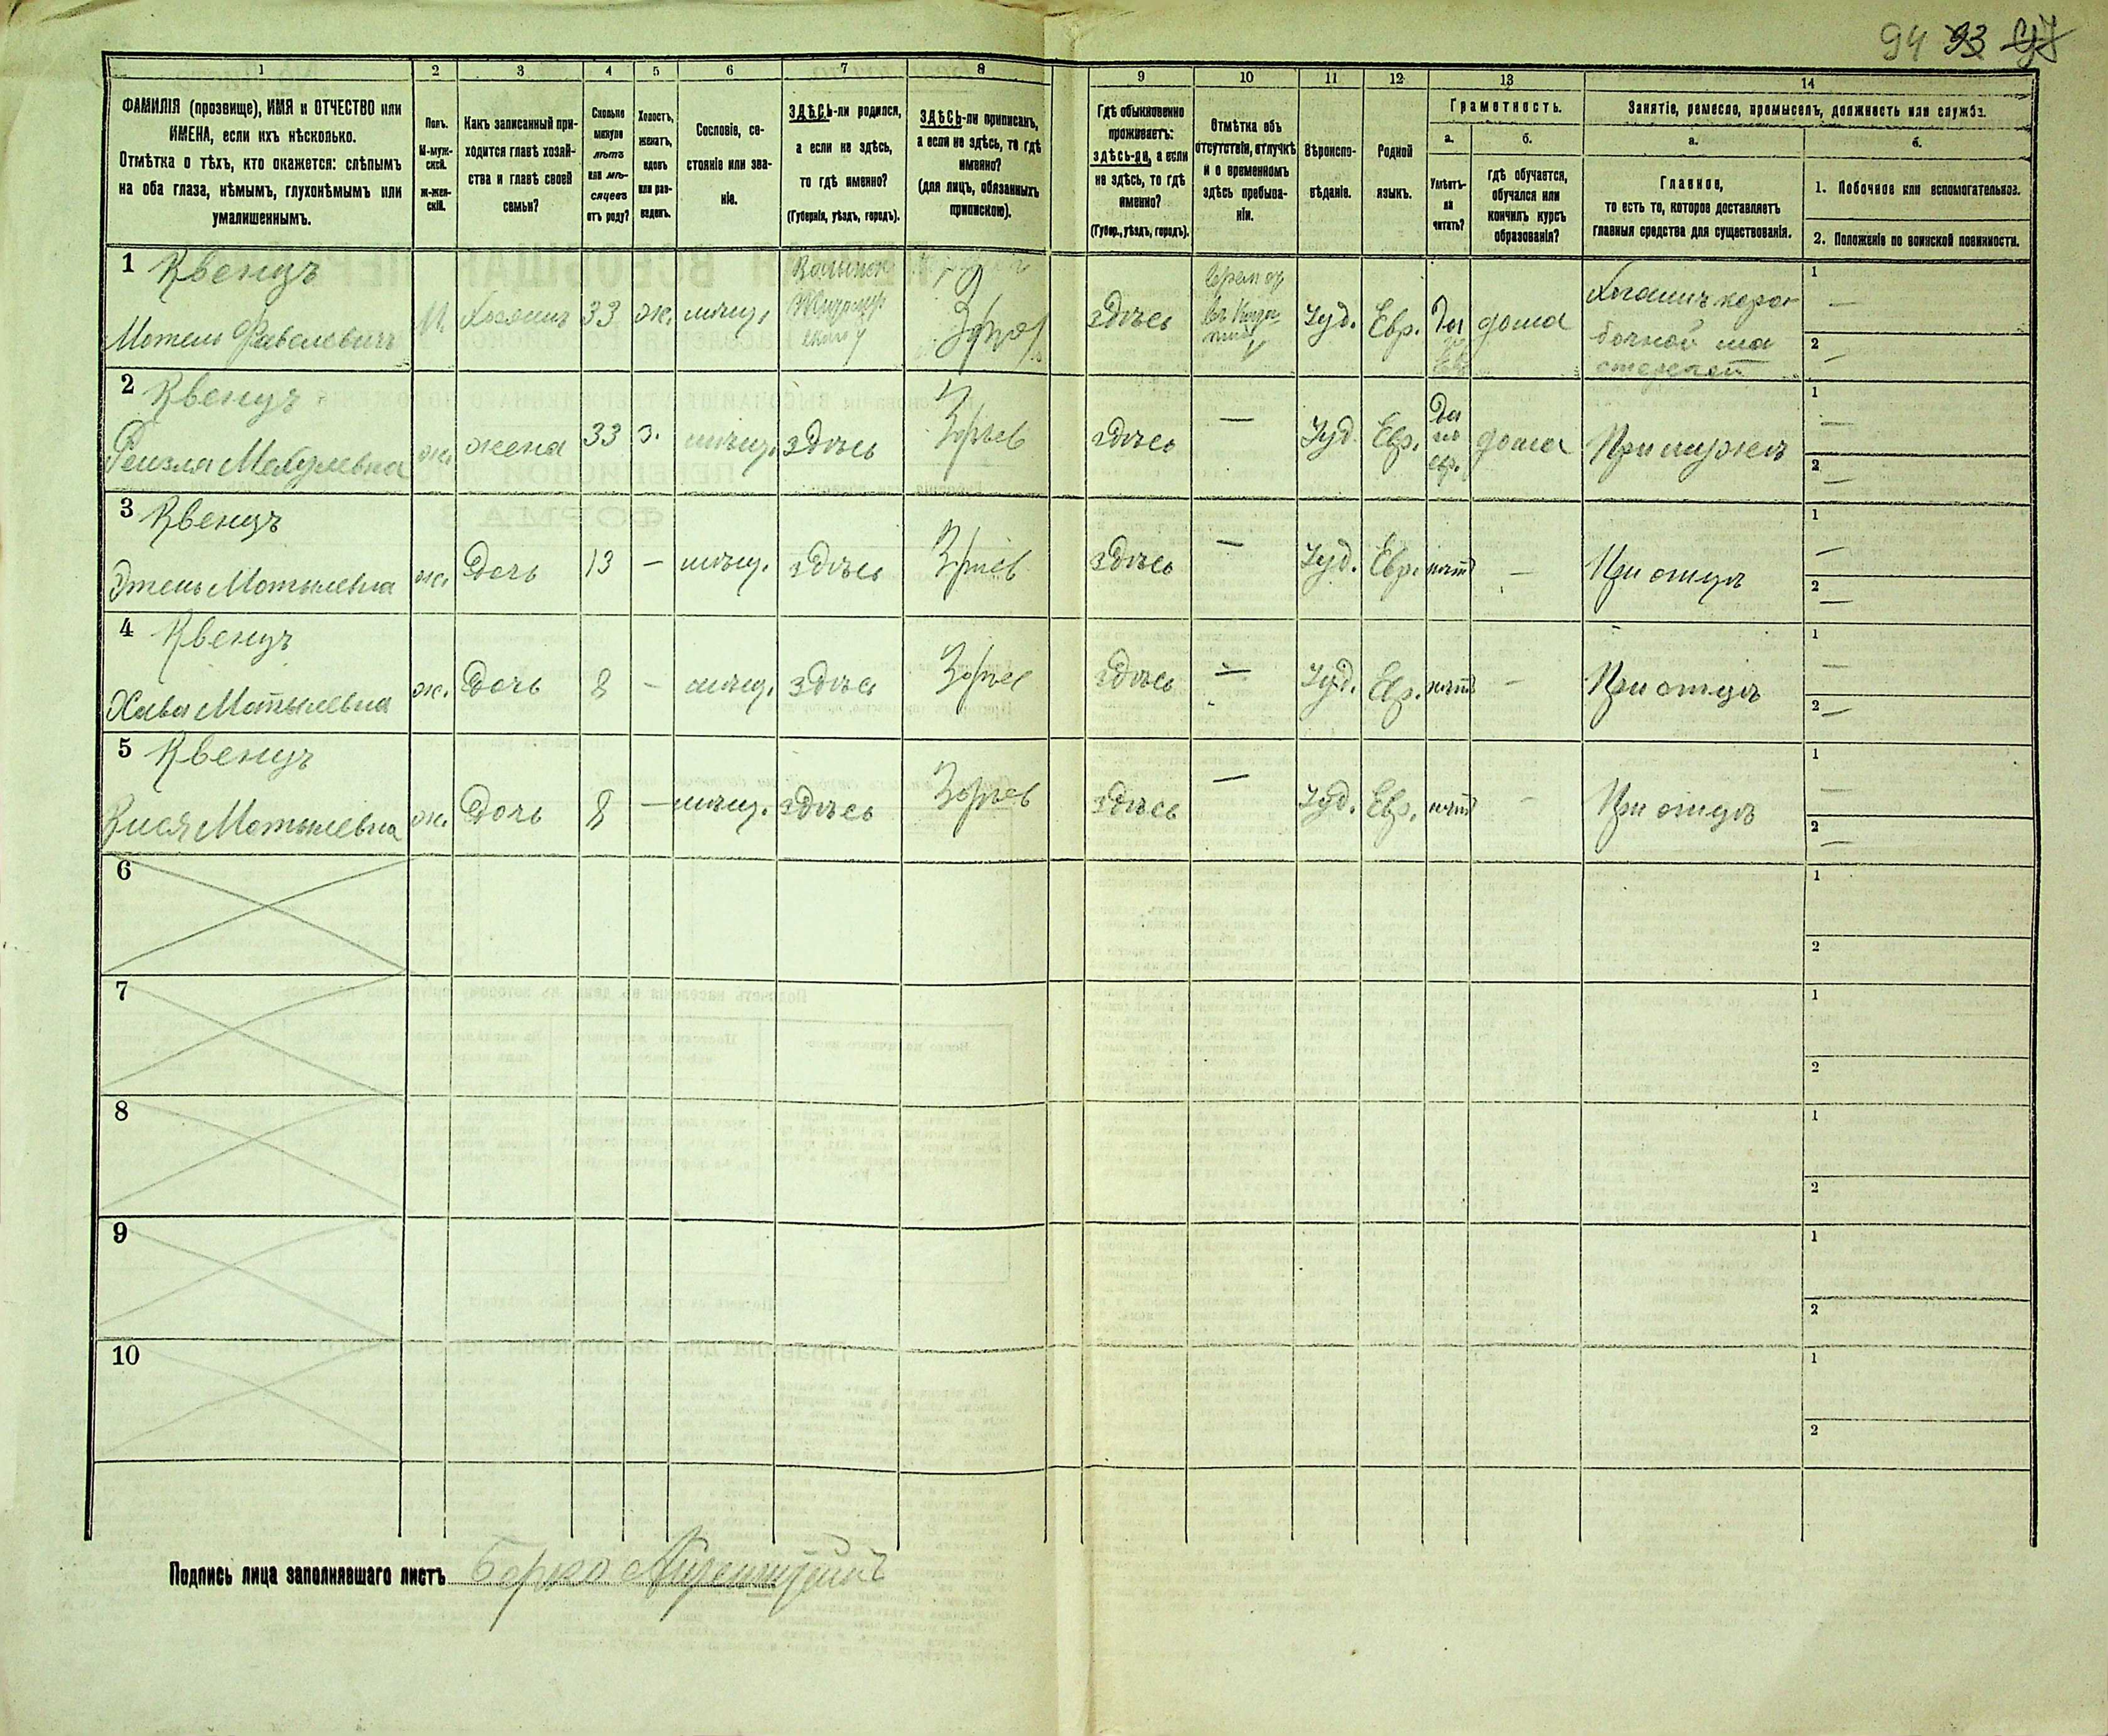 94 93 97
1 2 3 4 5 6 7 8 9 10 11 12 13 14
ФАМИЛІЯ (прозвище), ИМЯ и ОТЧЕСТВО или
ИМЕНА, если ихъ нѣсколько.
Отмѣтка о тѣхъ, кто окажется: слѣпымъ
на оба глаза, нѣмымъ, глухонѣмымъ или
умалишеннымъ.
Полъ.
М-муж-
ской.
Ж-жен-
скій.
Какъ записанный при-
ходится главѣ хозяй-
ства и главѣ своей
семьи?
Сколько
минуло
лѣтъ
или мѣ-
сяцевъ
отъ роду?
Холостъ,
женатъ,
вдовъ
или раз-
веденъ.
Сословіе, со-
стояніе или зва-
ніе.
ЗДѢСЬ-ли родился,
а если не здѣсь,
то гдѣ именно?
(Губернія, уѣздъ, городъ).
ЗДѢСЬ-ли приписанъ,
а если не здѣсь, то гдѣ
именно?
(для лицъ, обязанныхъ
припискою).
Гдѣ обыкновенно
проживаетъ:
здѣсь-ли, а если
не здѣсь, то гдѣ
именно?
(Губер., уѣздъ, городъ).
Отмѣтка объ
отсутствіи, отлучкѣ
и о временномъ
здѣсь пребыва-
ніи.
Вѣроиспо-
вѣданіе.
Родной
языкъ.
Грамотность.
а.
Умѣетъ-
ли
читать?
б.
гдѣ обучается,
обучался или
кончилъ курсъ
образованія?
Занятіе, ремесло, промыселъ, должность или служба.
а.
Главное,
то есть то, которое доставляетъ
главныя средства для существованія.
б.
1. Побочное или вспомогательное.
2. Положеніе по воинской повинности.
1 Квенцъ
Мотель М. Хозяинъ 33 ж. мѣщ. здѣсь Іуд. Евр. Да дома
1 —
2 —
2 Квенцъ
ж. жена 33 з. мѣщ. здѣсь здѣсь — Іуд. Евр. Да по евр. дома При мужѣ
1 —
2 —
3 Квенцъ
Этель Мотылевна ж. Дочь 13 — мѣщ. здѣсь здѣсь — Іуд. Евр. нѣтъ — При отцѣ
1 —
2 —
4 Квенцъ
Хава Мотылевна ж. Дочь 8 — мѣщ. здѣсь здѣсь — Іуд. Евр. нѣтъ — При отцѣ
1 —
2 —
5 Квенцъ
Мотылевна ж. Дочь 8 — мѣщ. здѣсь здѣсь — Іуд. Евр. нѣтъ — При отцѣ
1 —
2 —
6
1
2
7
1
2
8
1
2
9
1
2
10
1
2
Подпись лица заполнявшаго листъ Берко